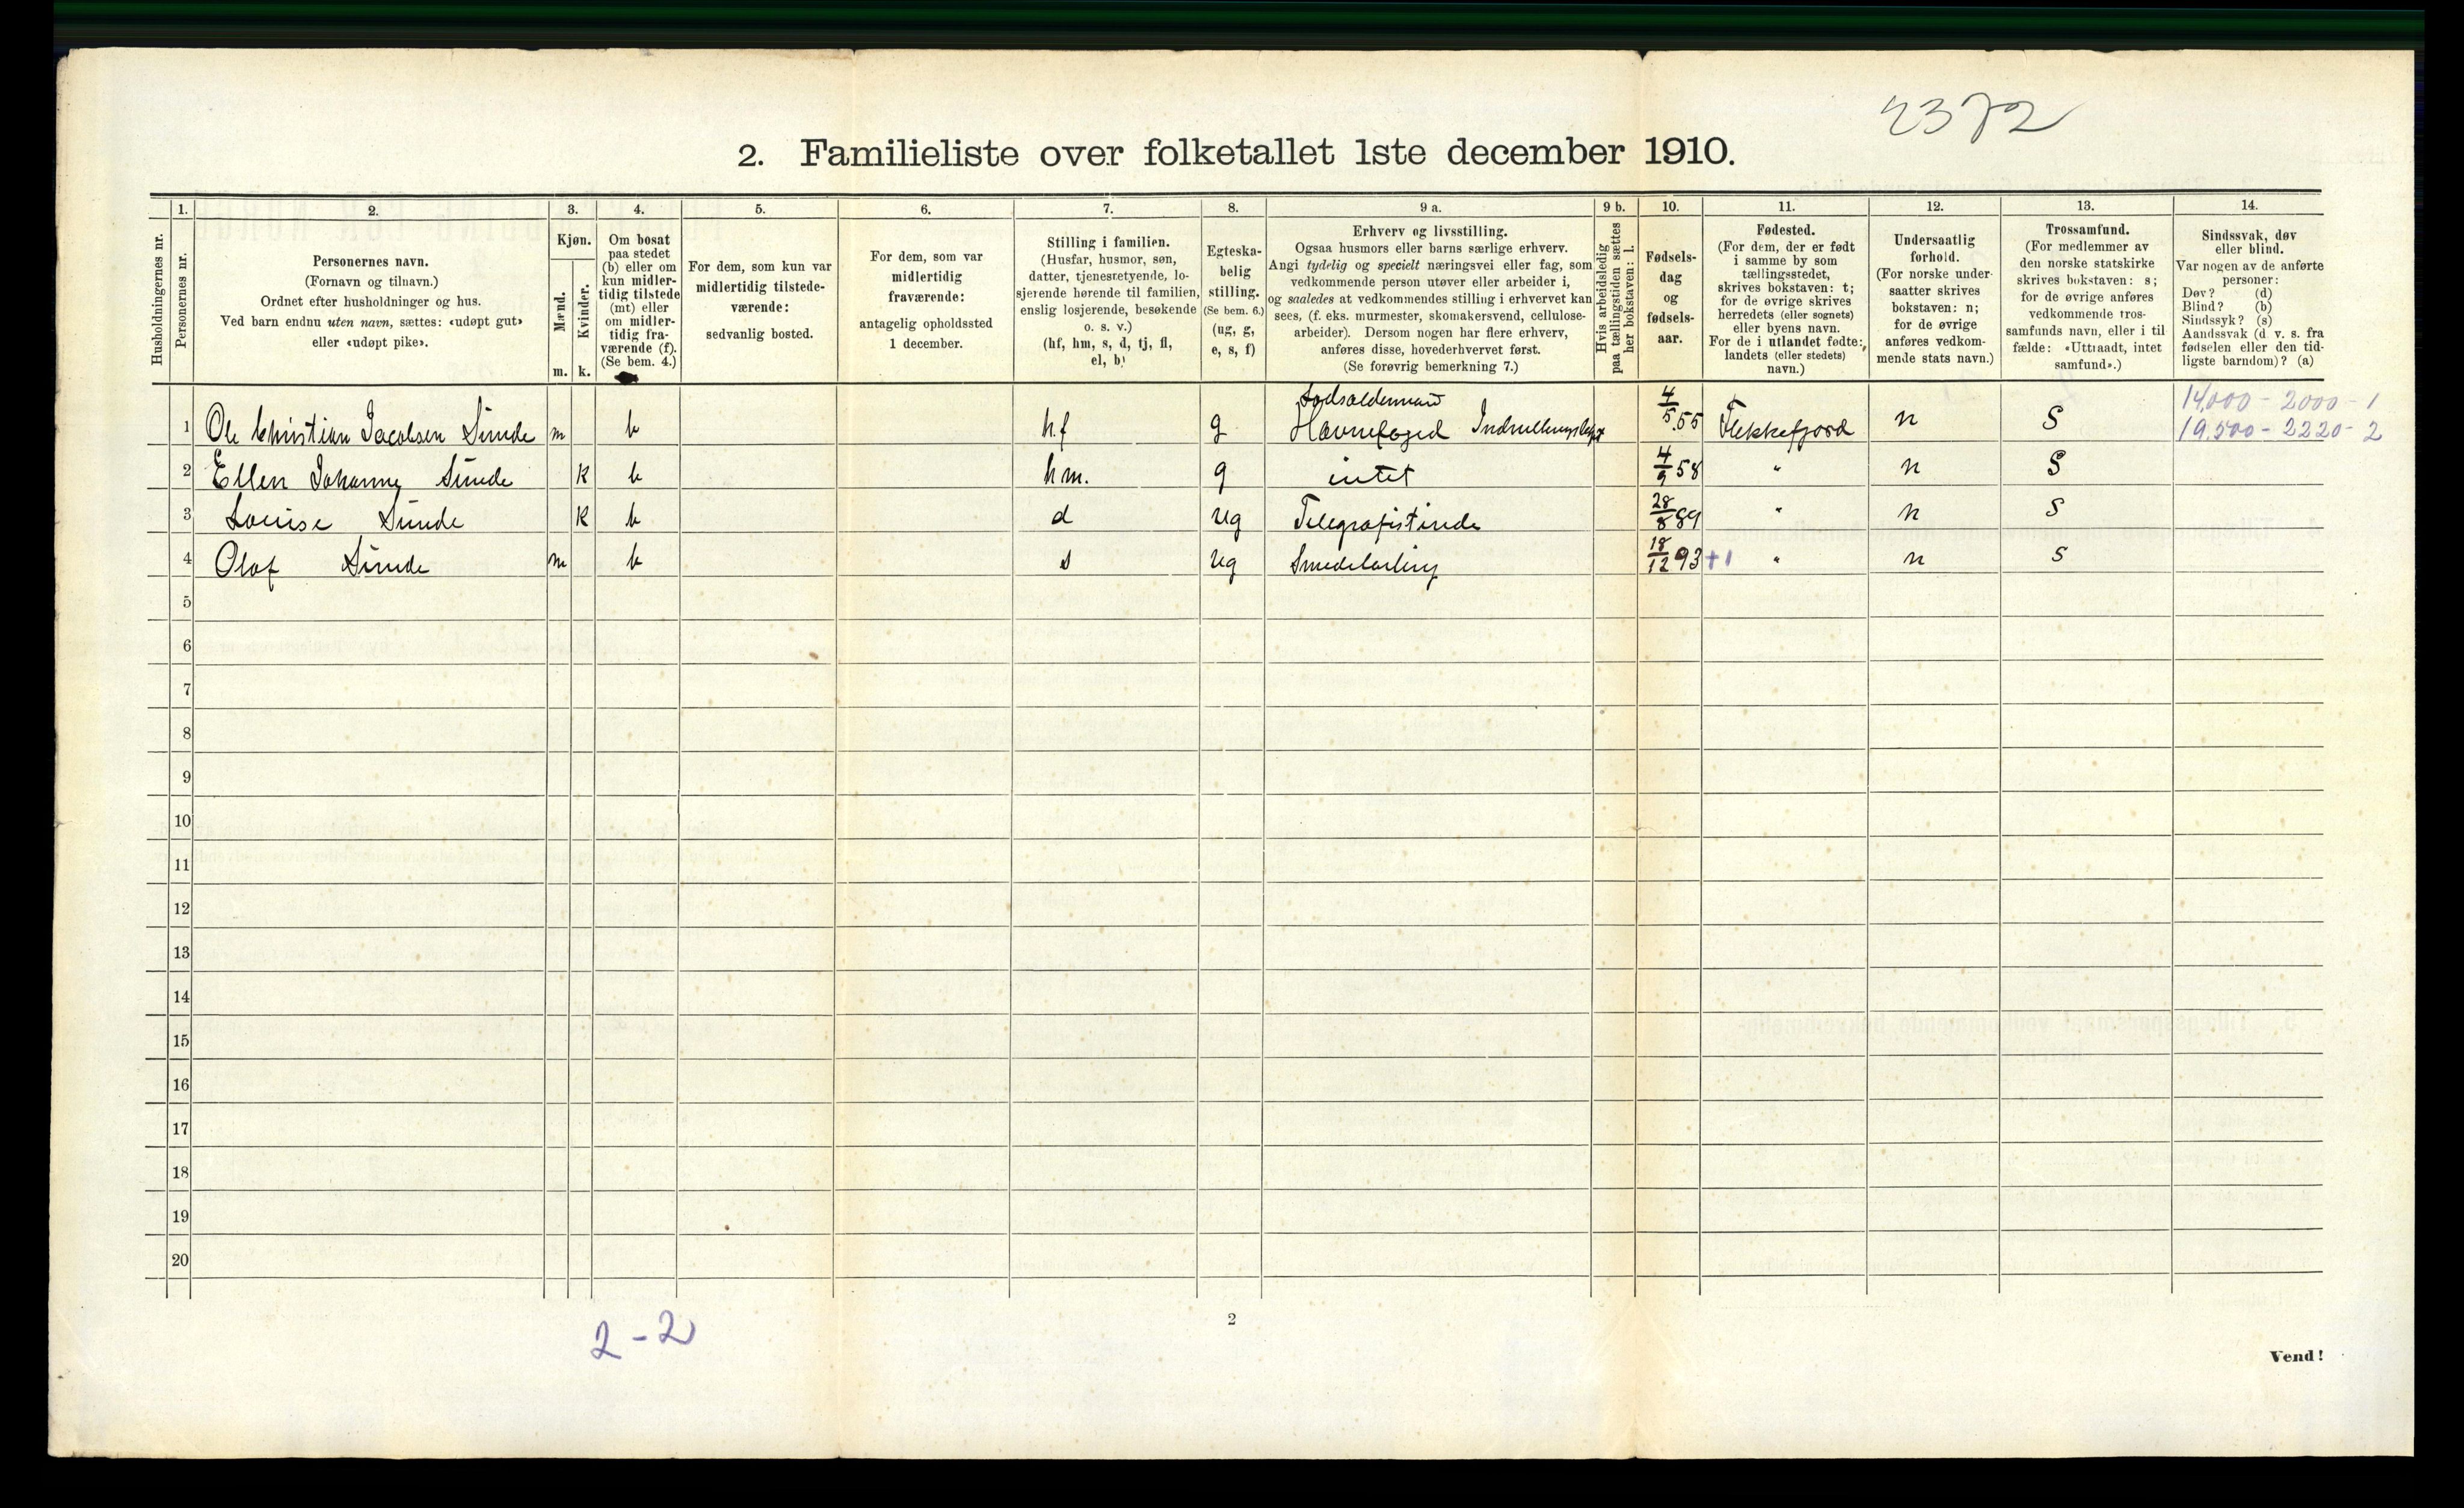 2372
2. Familieliste over folketallet 1ste december 1910.
Husholdningernes nr.
1.
Personernes nr.
2.
Personernes navn.
(Fornavn og tilnavn.)
Ordnet efter husholdninger og hus.
Ved barn endnu uten navn, sættes: «udøpt gut»
eller «udøpt pike».
3.
Kjøn.
Mænd.
Kvinder.
m. k.
4.
Om bosat
paa stedet
(b) eller om
kun midler-
tidig tilstede
(mt) eller
om midler-
tidig fra-
værende (f).
(Se bem. 4.)
5.
For dem, som kun var
midlertidig tilstede-
værende:
sedvanlig bosted.
6.
For dem, som var
midlertidig
fraværende:
antagelig opholdssted
1 december.
7.
Stilling i familien.
(Husfar, husmor, søn,
datter, tjenestetyende, lo-
sjerende hørende til familien,
enslig losjerende, besøkende
o. s. v.)
(hf, hm, s, d, tj, fl,
el, b)
8.
Egteska-
belig
stilling.
(Se bem. 6.)
(ug, g,
e, s, f)
9 a.
Erhverv og livsstilling.
Ogsaa husmors eller barns særlige erhverv.
Angi tydelig og specielt næringsvei eller fag, som
vedkommende person utøver eller arbeider i,
og saaledes at vedkommendes stilling i erhvervet kan
sees, (f. eks. murmester, skomakersvend, cellulose-
arbeider). Dersom nogen har flere erhverv,
anføres disse, hovederhvervet først.
(Se forøvrig bemerkning 7.)
9 b.
Hvis arbeidsledig
paa tællingstiden sættes
her bokstaven: l.
10.
Fødsels-
dag
og
fødsels-
aar.
11.
Fødested.
(For dem, der er født
i samme by som
tællingsstedet,
skrives bokstaven: t;
for de øvrige skrives
herredets (eller sognets)
eller byens navn.
For de i utlandet fødte:
landets (eller stedets)
navn.)
12.
Undersaatlig
forhold.
(For norske under-
saatter skrives
bokstaven: n;
for de øvrige
anføres vedkom-
mende stats navn.)
13.
Trossamfund.
(For medlemmer av
den norske statskirke
skrives bokstaven: s;
for de øvrige anføres
vedkommende tros-
samfunds navn, eller i til
fælde: «Uttraadt, intet
samfund».)
14.
Sindssvak, døv
eller blind.
Var nogen av de anførte
personer:
Døv? (d)
Blind? (b)
Sindssyk? (s)
Aandssvak (d. v. s. fra
fødselen eller den tid-
ligste barndom)? (a)
Lodsoldermand 14,000 - 2000 - 1
1 Ole Christian Jacobsen Sunde m b hf g Havnefoged 4/5 55 Flekkefjord n S 19,500 - 2220 - 2
2 Ellen Johanne Sunde k b hm. g intet 4/9 58 " n S
3 Louise Sunde k b d ug Telegrafistinde 28/8 89 " n S
4 Olaf Sunde m b s ug Smedelærling 18/12 93 +1 " n S
5
6
7
8
9
10
11
12
13
14
15
16
17
18
19
20
2-2
2
Vend!